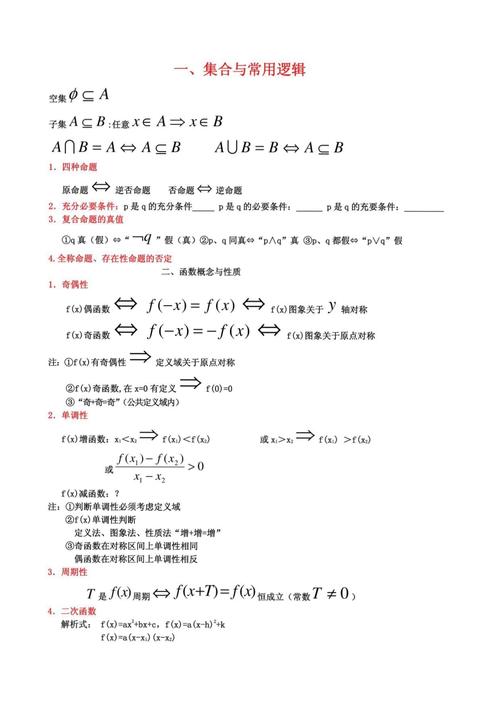 一、集合与常用逻辑
空集 ϕ ⊆ A
子集 A ⊆ B :任意 x∈ A ⇒ x∈ B
A⋂B = A ⇔ A ⊆ B A⋃B = B ⇔ A ⊆ B
1．四种命题
原命题 ⇔ 逆否命题 否命题 ⇔ 逆命题
2．充分必要条件：p 是 q 的充分条件____ p 是 q 的必要条件：_____ p 是 q 的充要条件：_______
3．复合命题的真值
①q 真（假）⇔“¬q”假（真）②p、q 同真⇔“p∧q”真 ③p、q 都假⇔“p∨q”假
4.全称命题、存在性命题的否定
二、函数概念与性质
1．奇偶性
f(x)偶函数 ⇔ f(−x) = f(x) ⇔ f(x)图象关于 y 轴对称
f(x)奇函数 ⇔ f(−x) = −f(x) ⇔ f(x)图象关于原点对称
注：①f(x)有奇偶性 ⇒ 定义域关于原点对称
②f(x)奇函数,在 x=0 有定义 ⇒ f(0)=0
③“奇+奇=奇”（公共定义域内）
2．单调性
f(x)增函数：x₁＜x₂ ⇒ f(x₁)＜f(x₂) 或 x₁＞x₂ ⇒ f(x₁) ＞f(x₂)
或 (f(x₁) − f(x₂))/(x₁ − x₂) > 0
f(x)减函数：？
注：①判断单调性必须考虑定义域
②f(x)单调性判断
定义法、图象法、性质法“增+增=增”
③奇函数在对称区间上单调性相同
偶函数在对称区间上单调性相反
3．周期性
T 是 f(x) 周期 ⇔ f(x+T) = f(x) 恒成立（常数 T ≠ 0 ）
4．二次函数
解析式： f(x)=ax²+bx+c，f(x)=a(x-h)²+k
f(x)=a(x-x₁)(x-x₂)